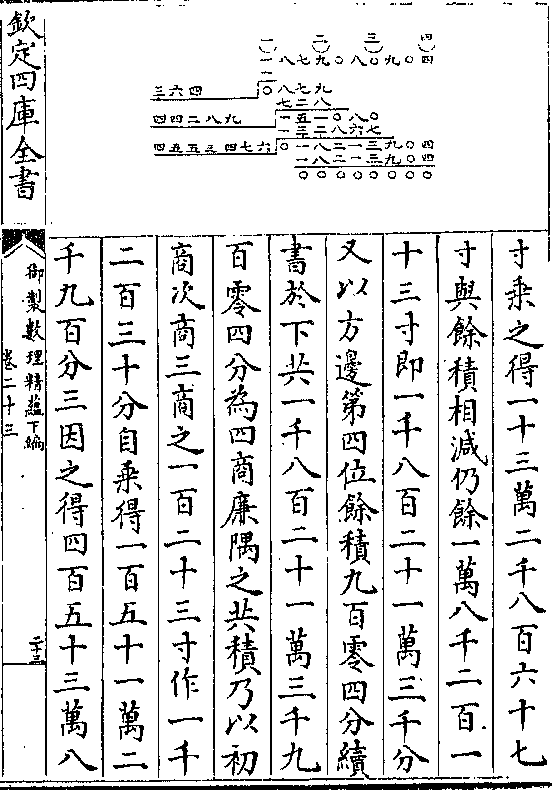 一 二 三 四
一八七九〇八〇九〇四
一
三六四 〇八七九
七二八
四四二八九 一五一〇八〇
一三二八六七
四五五三四七六 〇一八二一三九〇四
一八二一三九〇四
〇〇〇〇〇〇〇〇
寸乘之得一十三萬二千八百六十七
寸與餘積相減仍餘一萬八千二百一
十三寸即一千八百二十一萬三千分
又以方邊第四位餘積九百零四分續
書於下共一千八百二十一萬三千九
百零四分為四商廉隅之共積乃以初
商次商三商之一百二十三寸作一千
二百三十分自乘得一百五十一萬二
千九百分三因之得四百五十三萬八
欽定四庫全書
御製數理精蘊下編
卷二十三
二十三